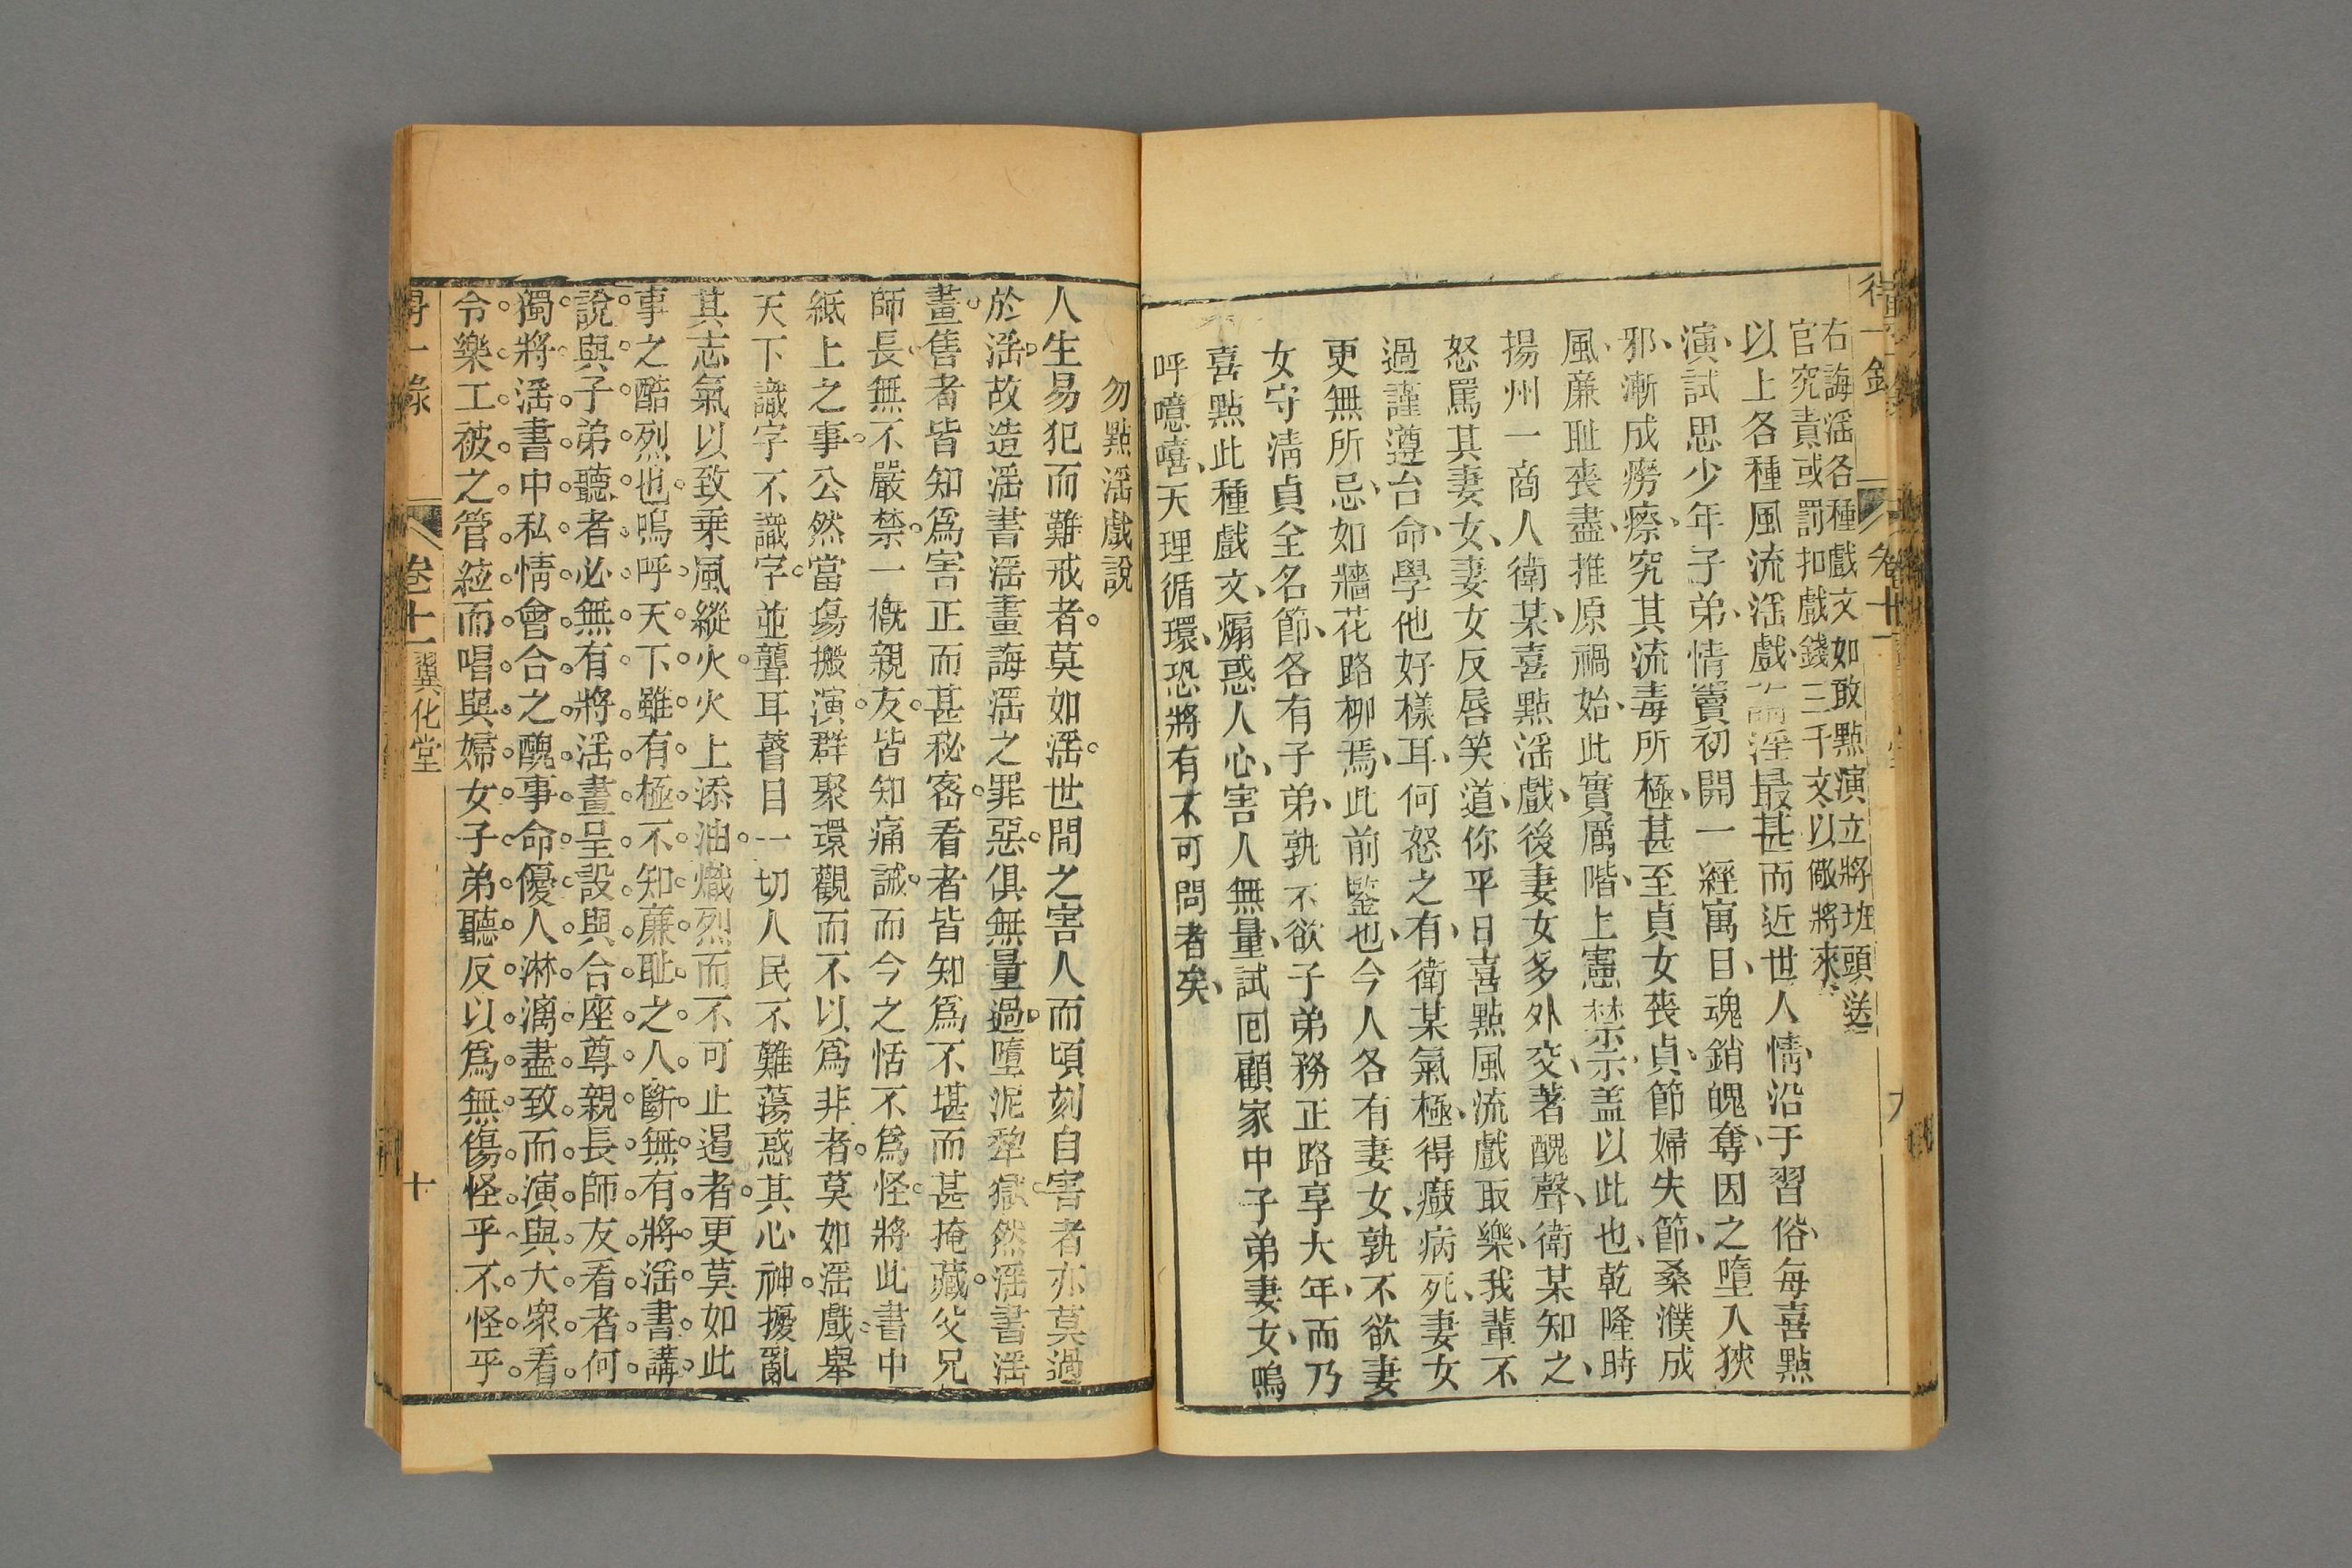 得一錄
卷十一
右誨淫各種戲文如敢點演立將班頭送
官究責或罰扣戲錢三千文以儆將來
以上各種風流淫戲誨淫最甚而近世人情沿于習俗每喜點
演試思少年子弟情竇初開一經寓目魂銷魄奪因之墮入狹
邪漸成癆瘵究其流毒所極甚至貞女喪貞節婦失節桑濮成
風廉耻喪盡推原禍始此實厲階上憲禁示盖以此也乾隆時
揚州一商人衛某喜點淫戲後妻女多外交著醜聲衛某知之
怒罵其妻女妻女反唇笑道你平日喜點風流戲取樂我輩不
過謹遵台命學他好樣耳何怒之有衛某氣極得癡病死妻女
更無所忌如牆花路柳焉此前鑒也今人各有妻女孰不欲妻
女守清貞全名節各有子弟孰不欲子弟務正路享大年而乃
喜點此種戲文煽惑人心害人無量試囘顧家中子弟妻女嗚
呼噫嘻天理循環恐將有不可問者矣
勿點淫戲說
人生易犯而難戒者莫如淫世間之害人而頃刻自害者亦莫過
於淫故造淫書淫畫誨淫之罪惡俱無量過墮泥犂獄然淫書淫
畫售者皆知爲害正而甚秘密看者皆知爲不堪而甚掩藏父兄
師長無不嚴禁一概親友皆知痛誡而今之恬不爲怪將此書中
紙上之事公然當塲搬演群聚環觀而不以爲非者莫如淫戲舉
天下識字不識字並聾耳瞽目一切人民不難蕩惑其心神擾亂
其志氣以致乗風縱火火上添油熾烈而不可止遏者更莫如此
事之酷烈也嗚呼天下雖有極不知廉耻之人斷無有將淫書講
說與子弟聽者必無有將淫畫呈設與合座尊親長師友看者何
獨將淫書中私情會合之醜事命優人淋漓盡致而演與大衆看
令樂工被之管絃而唱與婦女子弟聽反以爲無傷怪乎不怪乎
得一錄
卷十一
翼化堂
十